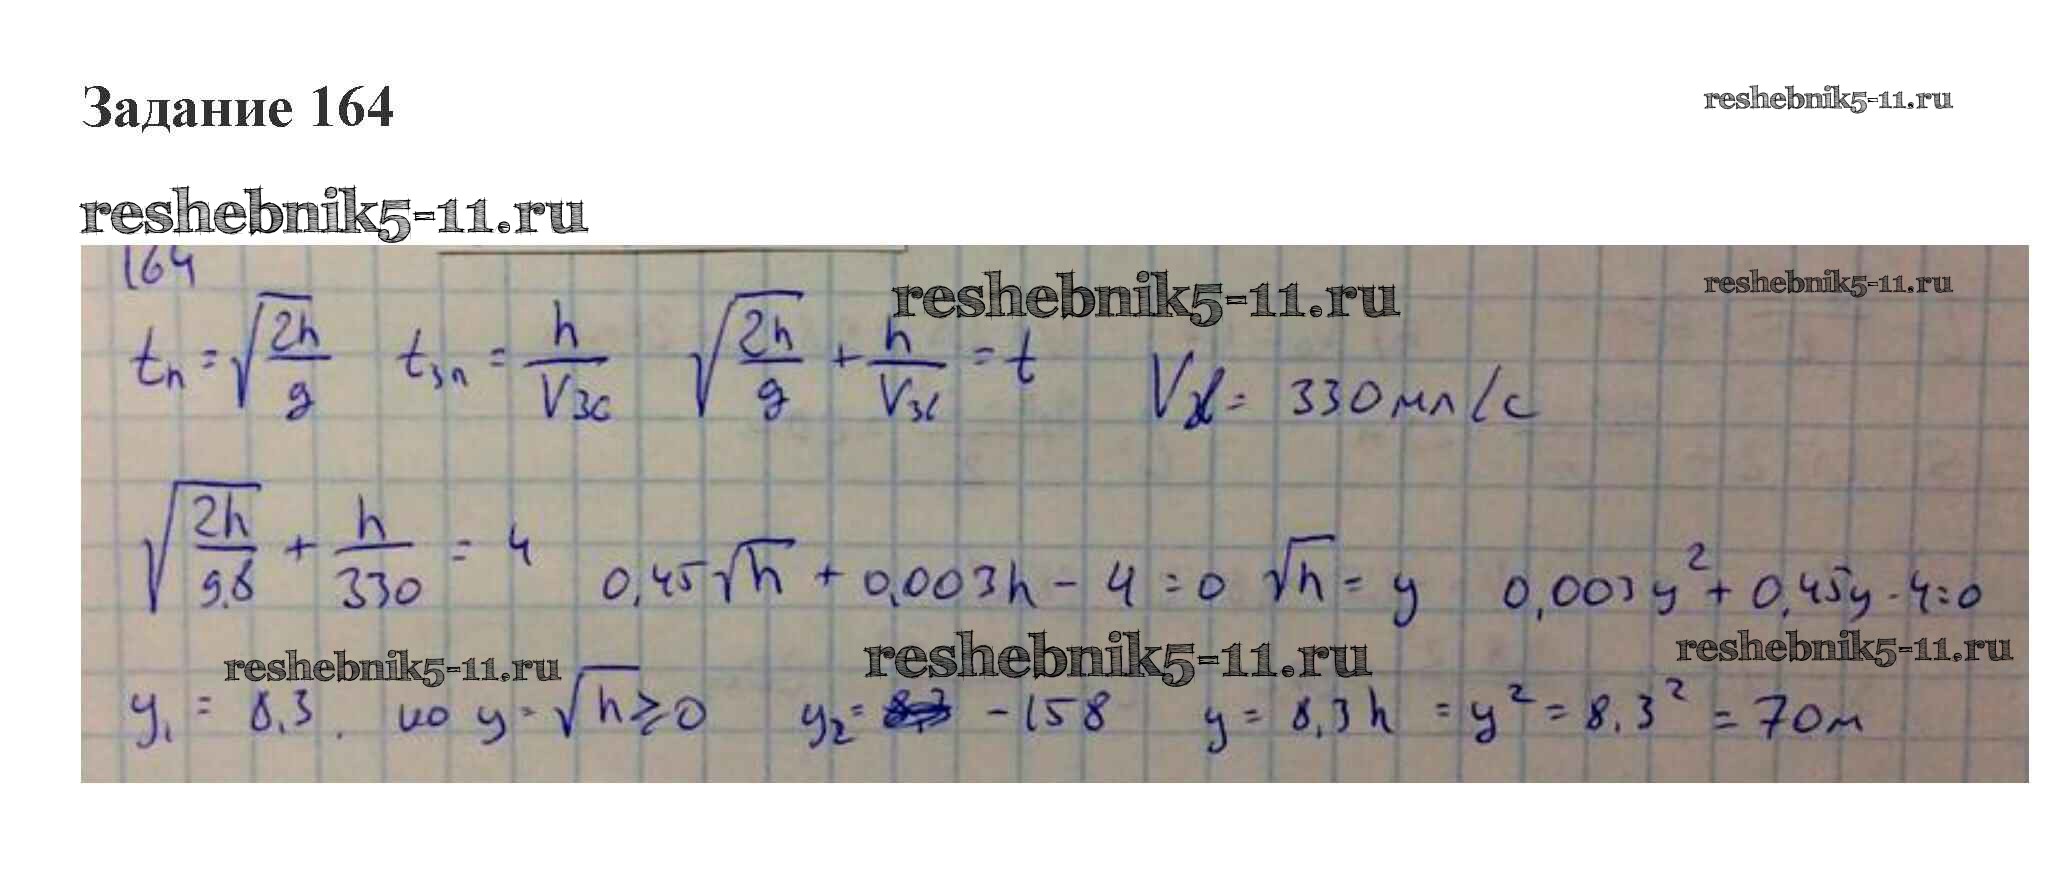 Задание 164
reshebnik5-11.ru
reshebnik5-11.ru
164
reshebnik5-11.ru
reshebnik5-11.ru
tп = √(2h/g) tзп = h/Vзс √(2h/g) + h/Vзс = t Vх = 330 мл/с
√(2h/9.8) + h/330 = 4 0,45√h + 0,003h - 4 = 0 √h = y 0,003y² + 0,45y - 4 = 0
reshebnik5-11.ru
reshebnik5-11.ru
reshebnik5-11.ru
y₁ = 8,3. но y = √h ≥ 0 y₂ = -158 y = 8,3 h = y² = 8.3² = 70м